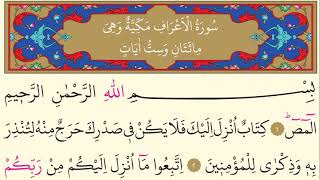 سُورَةُ الْاَعْرَافِ مَكِّيَّةٌ وَهِيَ
مِائَتَانِ وَسِتُّ اٰيَاتٍ
بِسْمِ اللّٰهِ الرَّحْمٰنِ الرَّحِيمِ
الٓمٓصٓ ﴿١﴾ كِتَابٌ اُنْزِلَ اِلَيْكَ فَلَا يَكُنْ فِى صَدْرِكَ حَرَجٌ مِنْهُ لِتُنْذِرَ
بِهِ وَذِكْرٰى لِلْمُؤْمِنِينَ ﴿٢﴾ اِتَّبِعُوا مَٓا اُنْزِلَ اِلَيْكُمْ مِنْ رَبِّكُمْ